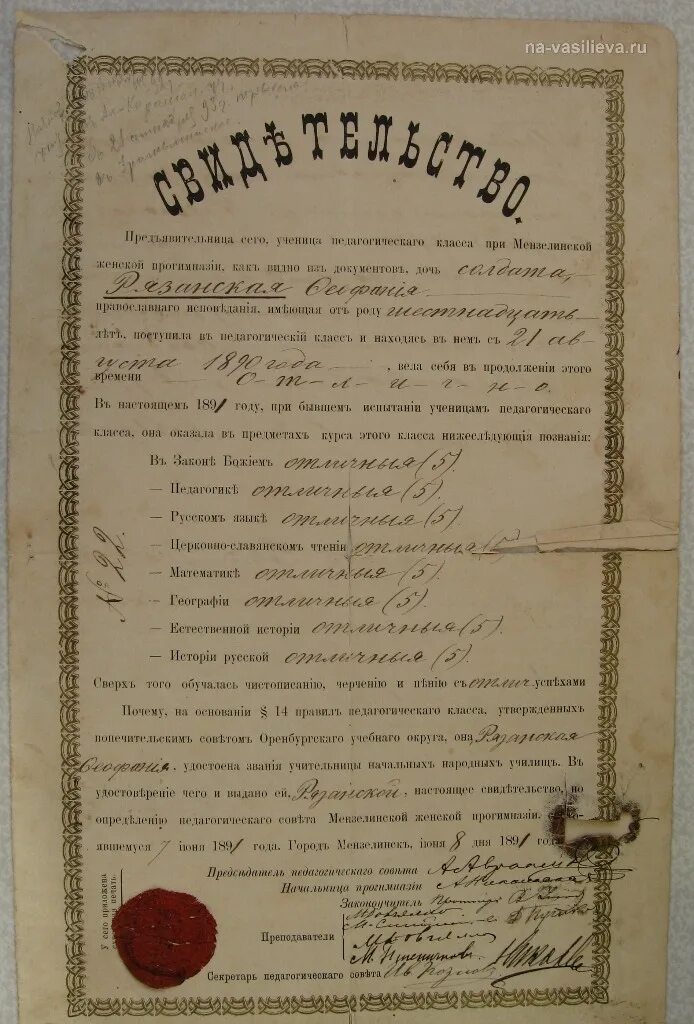 na-vasilieva.ru
СВИДѢТЕЛЬСТВО.
Предъявительница сего, ученица педагогическаго класса при Мензелинской
женской прогимназіи, какъ видно изъ документовъ, дочь солдата,
Рязанская Ѳеофанія
православнаго исповѣданія, имѣющая отъ роду шестнадцать
лѣтъ, поступила въ педагогическій классъ и находясь въ немъ съ 21 ав-
густа 1890 года, вела себя въ продолженіи этого
времени О-т-л-и-ч-н-о.
Въ настоящемъ 1891 году, при бывшемъ испытаніи ученицамъ педагогическаго
класса, она оказала въ предметахъ курса этого класса нижеслѣдующія познанія:
Въ Законѣ Божіемъ отличныя (5).
— Педагогикѣ отличныя (5).
— Русскомъ языкѣ отличныя (5).
— Церковно-славянскомъ чтеніи отличныя (5)
— Математикѣ отличныя (5).
— Географіи отличныя (5).
— Естественной исторіи отличныя (5).
— Исторіи русской отличныя (5).
№ 22.
Сверхъ того обучалась чистописанію, черченію и пѣнію съ отлич. успѣхами
Почему, на основаніи § 14 правилъ педагогическаго класса, утвержденныхъ
попечительскимъ совѣтомъ Оренбургскаго учебнаго округа, она Рязанская
Ѳеофанія, удостоена званія учительницы начальныхъ народныхъ училищъ. Въ
удостовѣреніе чего и выдано ей, Рязанской, настоящее свидѣтельство, по
опредѣленію педагогическаго совѣта Мензелинской женской прогимназіи,
явшемуся 7 іюня 1891 года. Городъ Мензелинскъ, іюня 8 дня 1891 года
Предсѣдатель педагогическаго совѣта
Начальница прогимназіи
Законоучитель
Преподаватели
Секретарь педагогическаго совѣта
У сего приложена
печать.